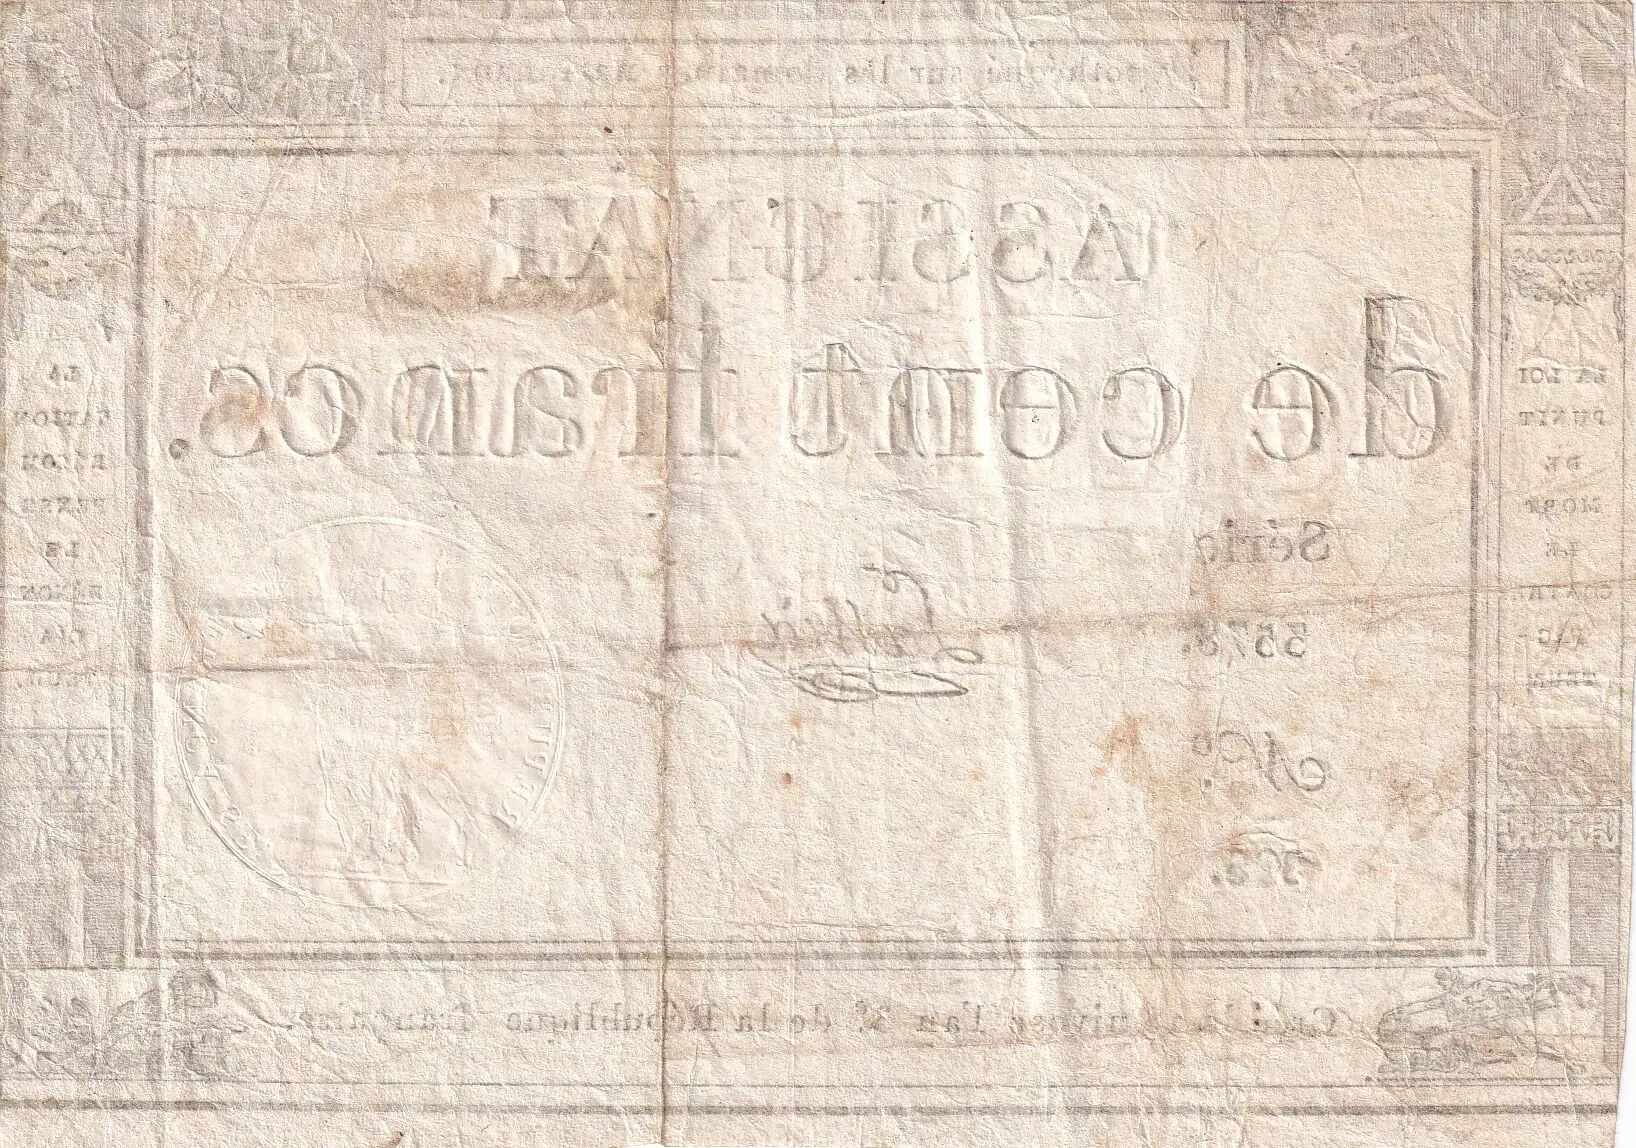 sur les domaines nationaux.
ASSIGNAT
de cent francs.
Série
N.o
LA LOI
PUNIT
DE
MORT
LE
LA
NATION
RÉCOM
PENSE
LE
DÉNON
CIA
TEUR.
Créé le nivose l'an 3.e de la République française.